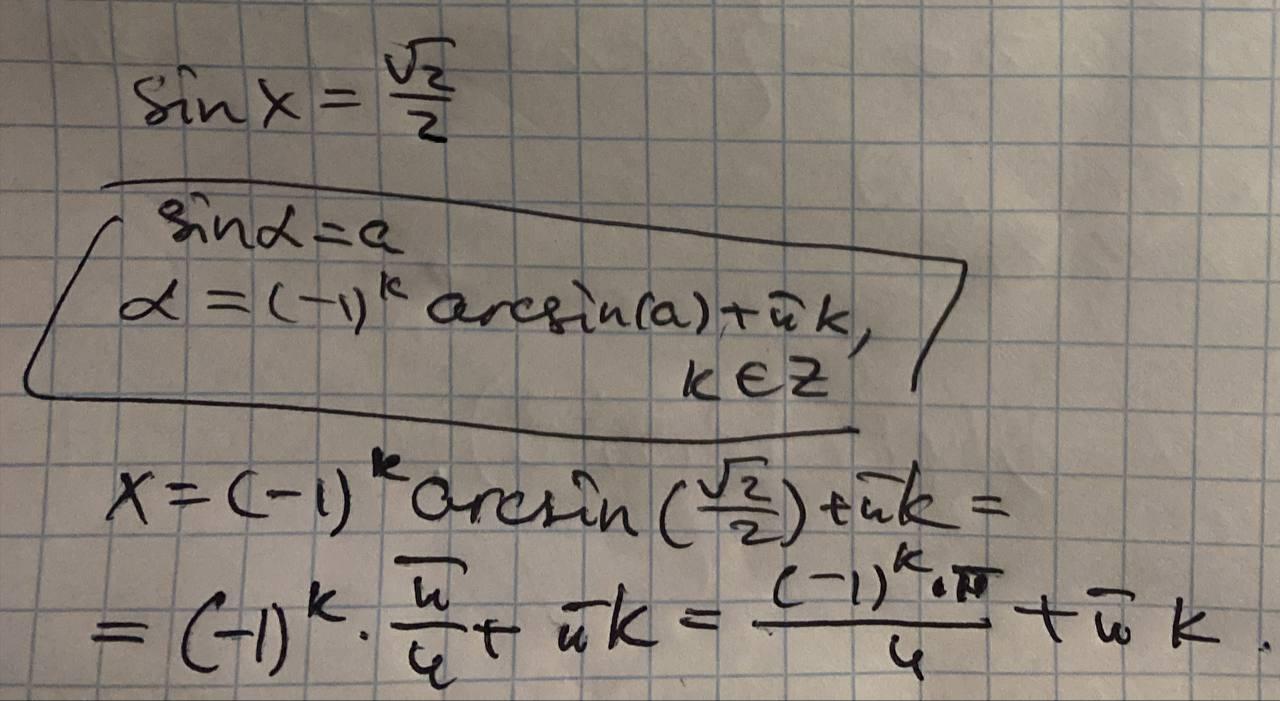 sin x = √2/2
sinα = a
α = (-1)^k arcsin(a) + πk,
k ∈ Z
x = (-1)^k arcsin(√2/2) + πk =
= (-1)^k · π/4 + πk = (-1)^k · π/4 + πk.